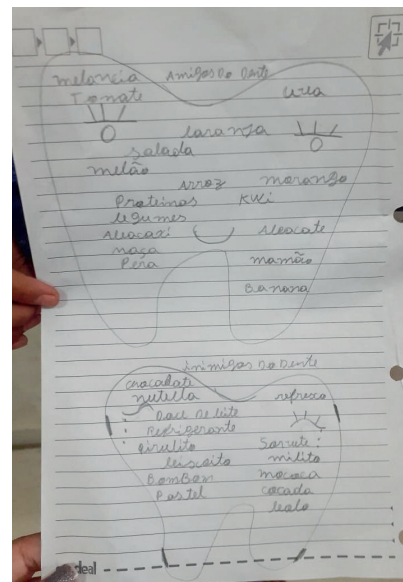 Amigos Do Dente
melancia
Tomate
uva
laranja
salada
melão
Arroz morango
Proteinas Kwi
legumes
Abacaxi Abacate
maça
Pera mamão
Banana
inimigos Do Dente
chocolate
nutella refresco
Doce De leite
Refrigerante
pirulito Sorvete
biscoito milito
BomBon
Pastel cocada
bolo
deal